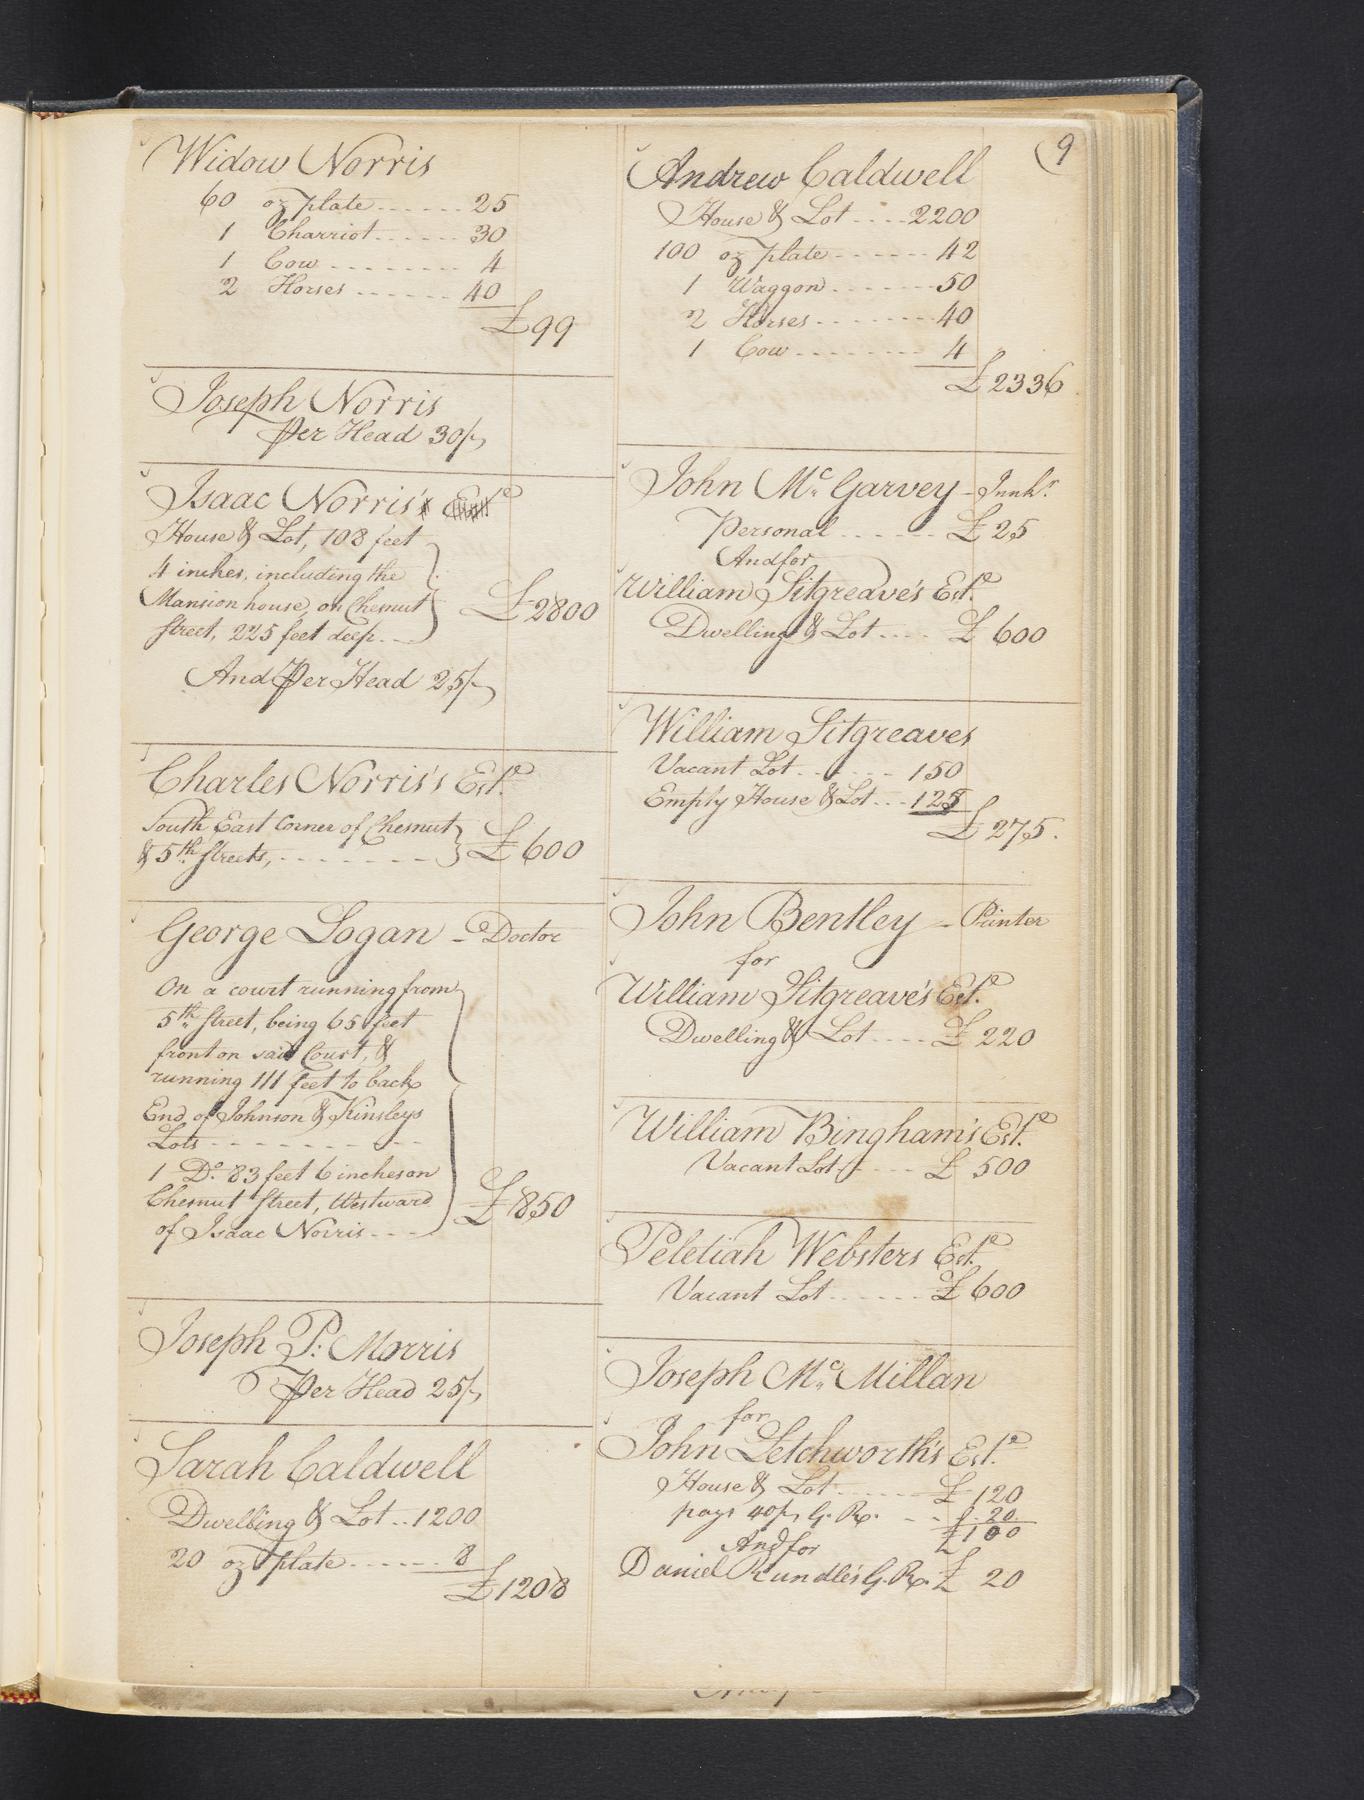 9
Widow Norris
60 oz plate ...... 25
1 Charriot ...... 30
1 Cow ........ 4
2 Horses ...... 40
£99
Joseph Norris
Per Head 30/
Isaac Norris's Este
House & Lot, 108 feet
4 inches, including the
Mansion house, on Chesnut
Street, 225 feet deep. £2800
And Per Head 25/
Charles Norris's Este
South East Corner of Chesnut
& 5th Streets, ........ £600
George Logan - Doctor
On a court running from
5th Street, being 65 feet
front on said Court, &
running 111 feet to back
End of Johnson & Kinsleys
Lots ........
1 Do. 83 feet 6 inches on
Chesnut Street, Westward £850
of Isaac Norris ...
Joseph P. Morris
Per Head 25/
Sarah Caldwell
Dwelling & Lot .. 1200
20 oz plate ...... 8
£1208
Andrew Caldwell
House & Lot .... 2200
100 oz plate ...... 42
1 Waggon ....... 50
2 Horses ........ 40
1 Cow ........ 4
£2336
John Mc Garvey - Innkr.
Personal ...... £25
And for
William Sitgreave's Este
Dwelling & Lot .... £600
William Sitgreaves
Vacant Lot ...... 150
Empty House & Lot ... 125
£275.
John Bentley - Printer
for
William Sitgreave's Este
Dwelling & Lot .... £220
William Bingham's Este
Vacant Lot .... £500
Peletiah Websters Este
Vacant Lot ...... £600
Joseph Mc Millan
for
John Letchworth's Este
House & Lot ....... £120
pays 40/ G. R. .. £ 20
£100
And for
Daniel Rundle's G. R. £ 20